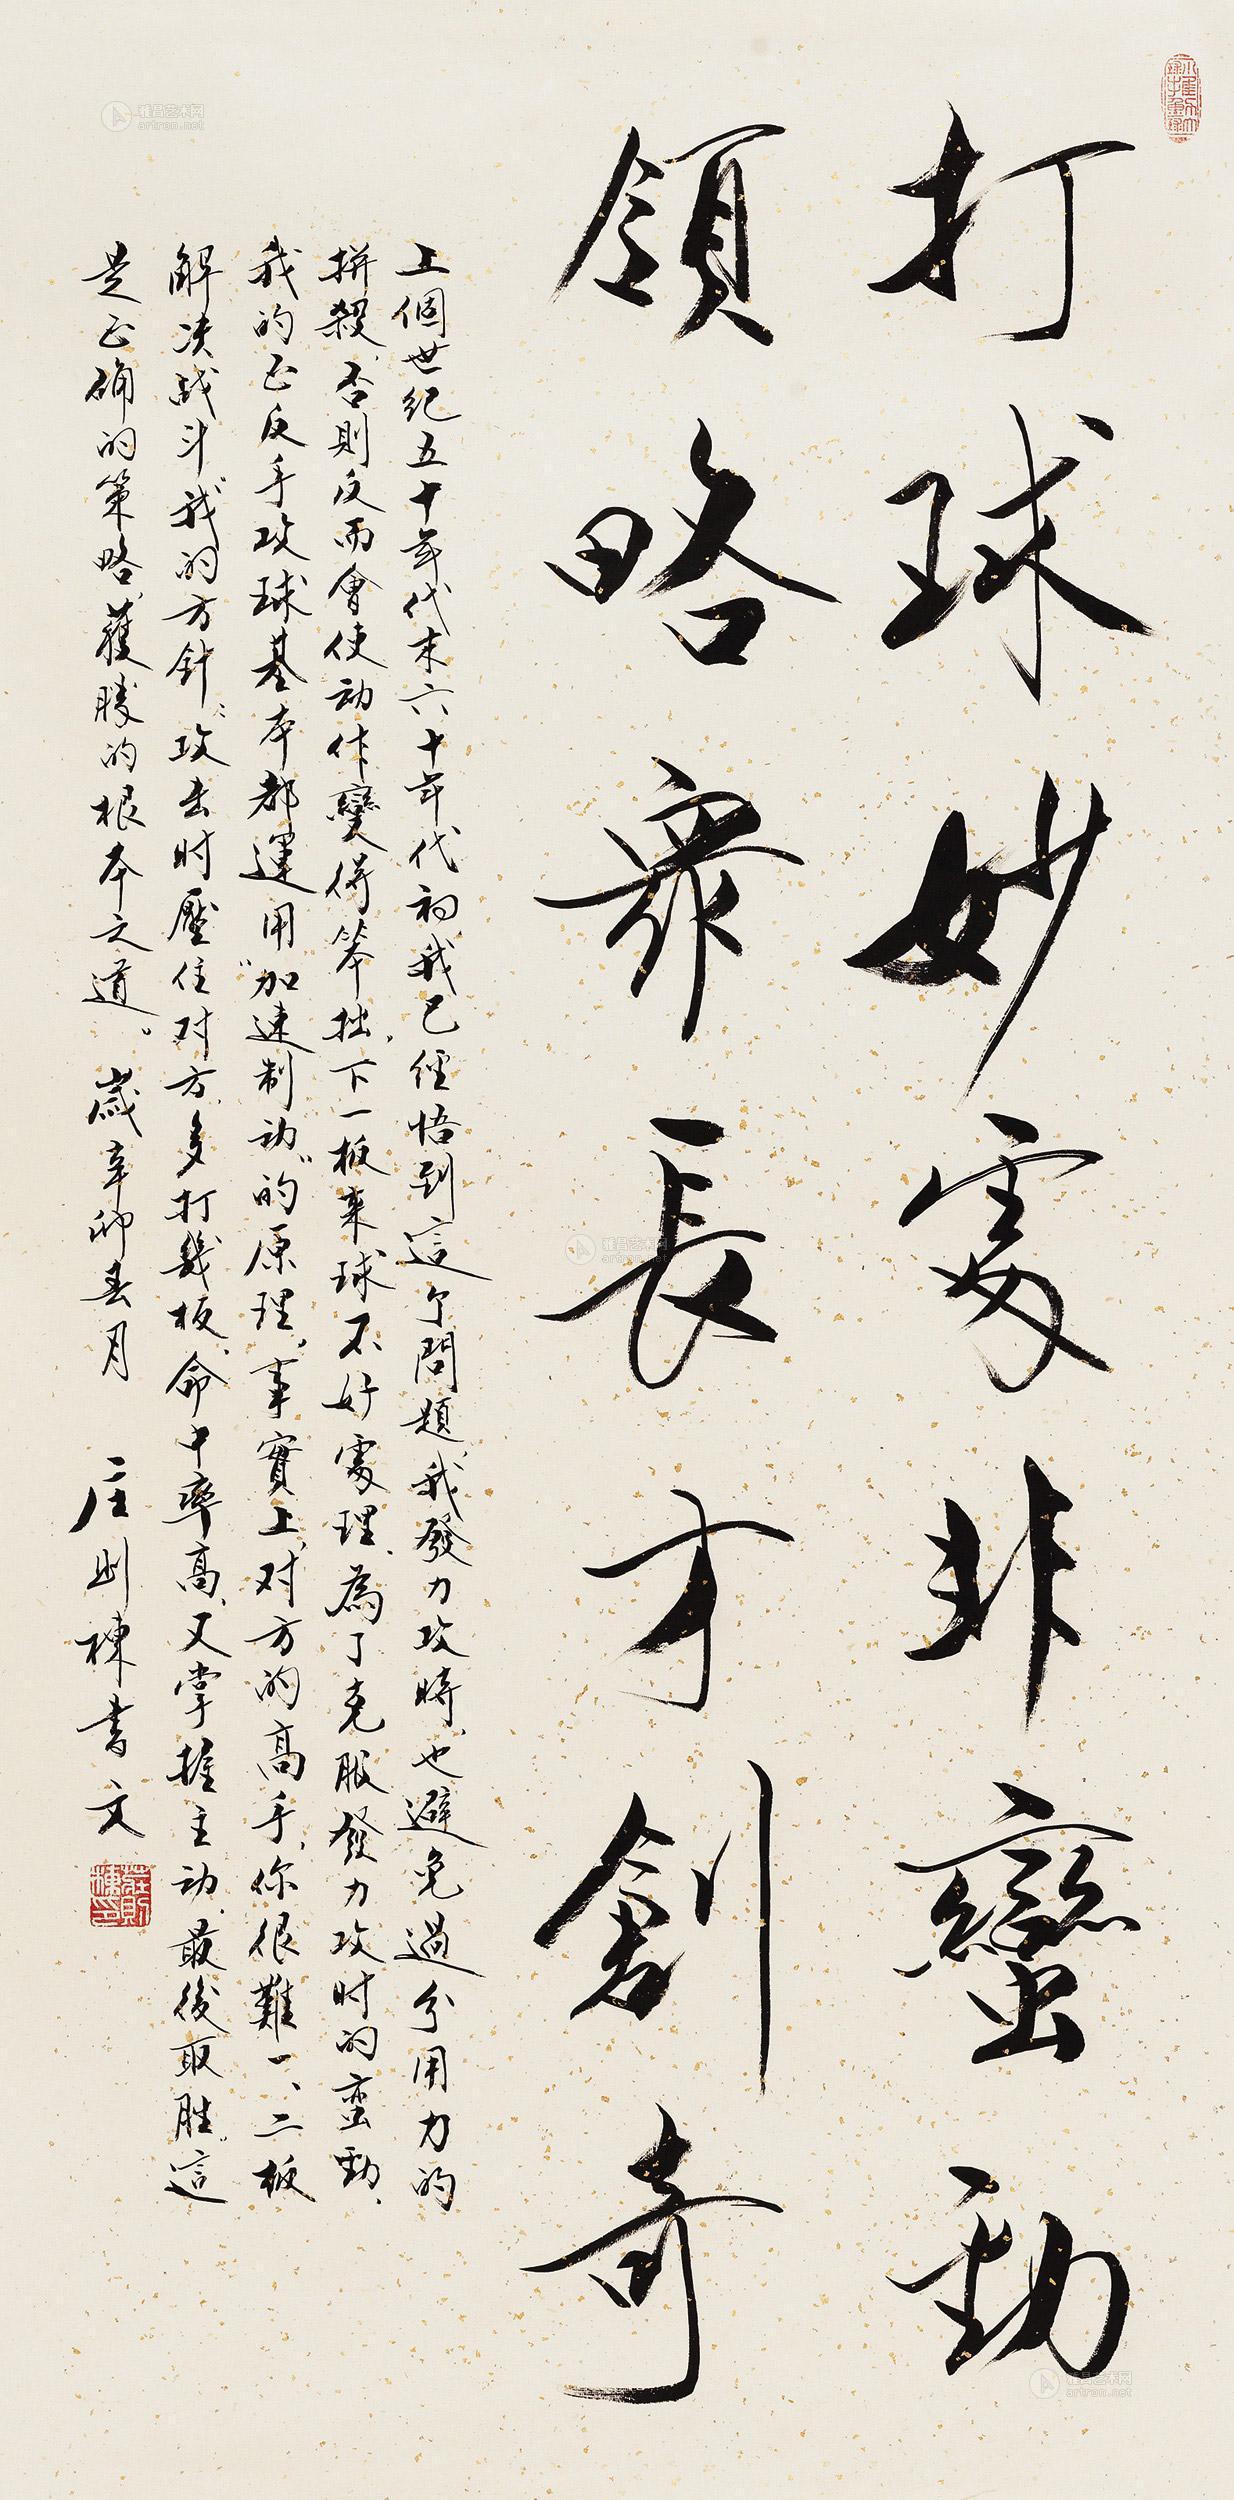 打球妙處非蠻勁
領略衆長才創奇
上個世纪五十年代末六十年代初我已經悟到這个問題,我發力攻時,也避免過分用力的
拼殺,否則反而會使动作變得笨拙,下一板來球不好處理,為了克服發力攻时的蛮勁、
我的正反手攻球基本都運用“加速制动”的原理,事實上,对方的高手,你很難一、二板
解决战斗,我的方針:攻击时壓住对方,多打幾板,命中率高,又掌握主动,最後取胜,這
是正确的策略,獲勝的根本之道。歲辛卯春月 庄则棟書文
莊則棟印
雅昌艺术网
artron.net
雅昌艺术网
artron.net
雅昌艺术网
artron.net